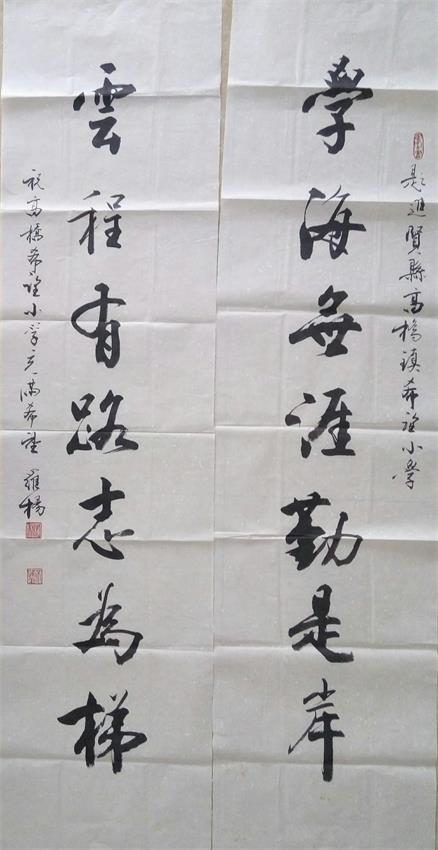 題進賢縣高橋鎮希望小學
學海無涯勤是岸
雲程有路志為梯
祝高橋希望小学充滿希望 羅楊